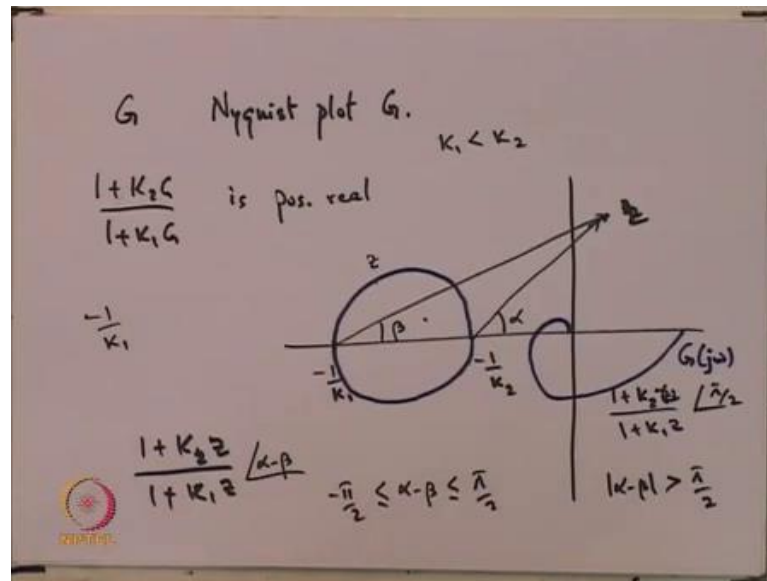 G Nyquist plot G.
K₁ < K₂
1 + K₂G
1 + K₁G
is pos. real
z
-1/K₁
β
α
-1/K₁
-1/K₂
G(jω)
1 + K₂
1 + K₁z
∠π/2
1 + K₂z
1 + K₁z
∠α-β
-π/2 ≤ α-β ≤ π/2
|α-β| > π/2
NPTEL